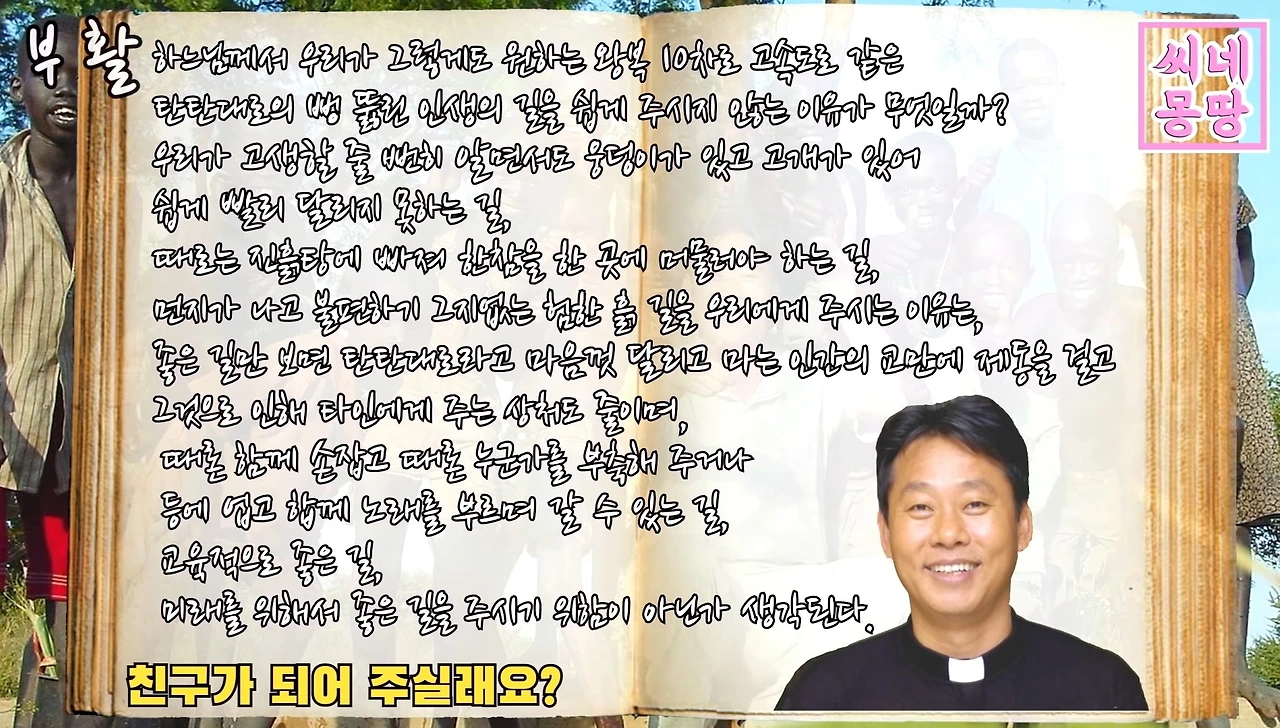 부활
씨네
몽땅
하느님께서 우리가 그렇게도 원하는 왕복 10차로 고속도로 같은
탄탄대로의 뻥 뚫린 인생의 길을 쉽게 주시지 않는 이유가 무엇일까?
우리가 고생할 줄 뻔히 알면서도 웅덩이가 있고 고개가 있어
쉽게 빨리 달리지 못하는 길,
때로는 진흙탕에 빠져 한참을 한 곳에 머물러야 하는 길,
먼지가 나고 불편하기 그지없는 험한 흙 길을 우리에게 주시는 이유는,
좋은 길만 보면 탄탄대로라고 마음껏 달리고 마는 인간의 교만에 제동을 걸고
그것으로 인해 타인에게 주는 상처도 줄이며,
때론 함께 손잡고 때론 누군가를 부축해 주거나
등에 업고 함께 노래를 부르며 갈 수 있는 길,
교육적으로 좋은 길,
미래를 위해서 좋은 길을 주시기 위함이 아닌가 생각된다.
친구가 되어 주실래요?